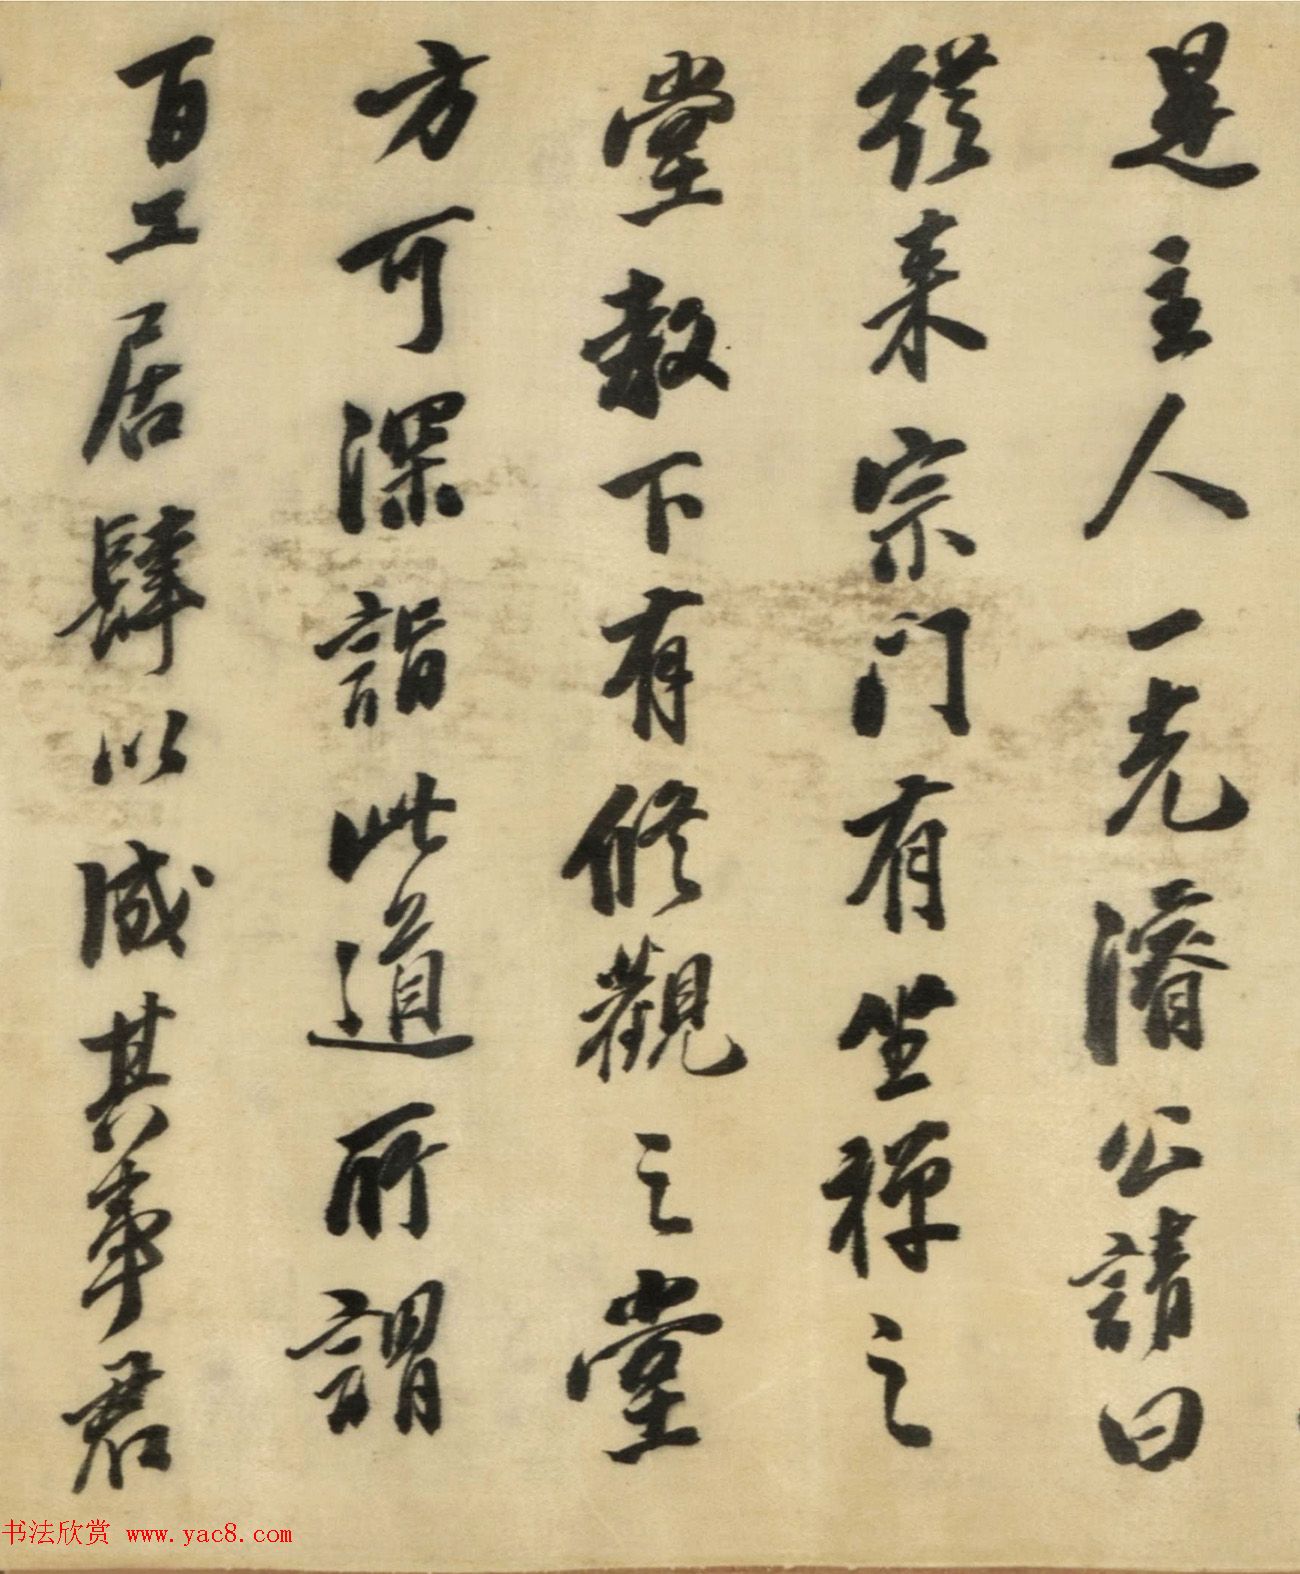 是主人一光濬公請曰
從来宗门有坐禅之
堂教下有修觀之堂
方可深詣此道所謂
百工居肆以成其事君
书法欣赏 www.yac8.com